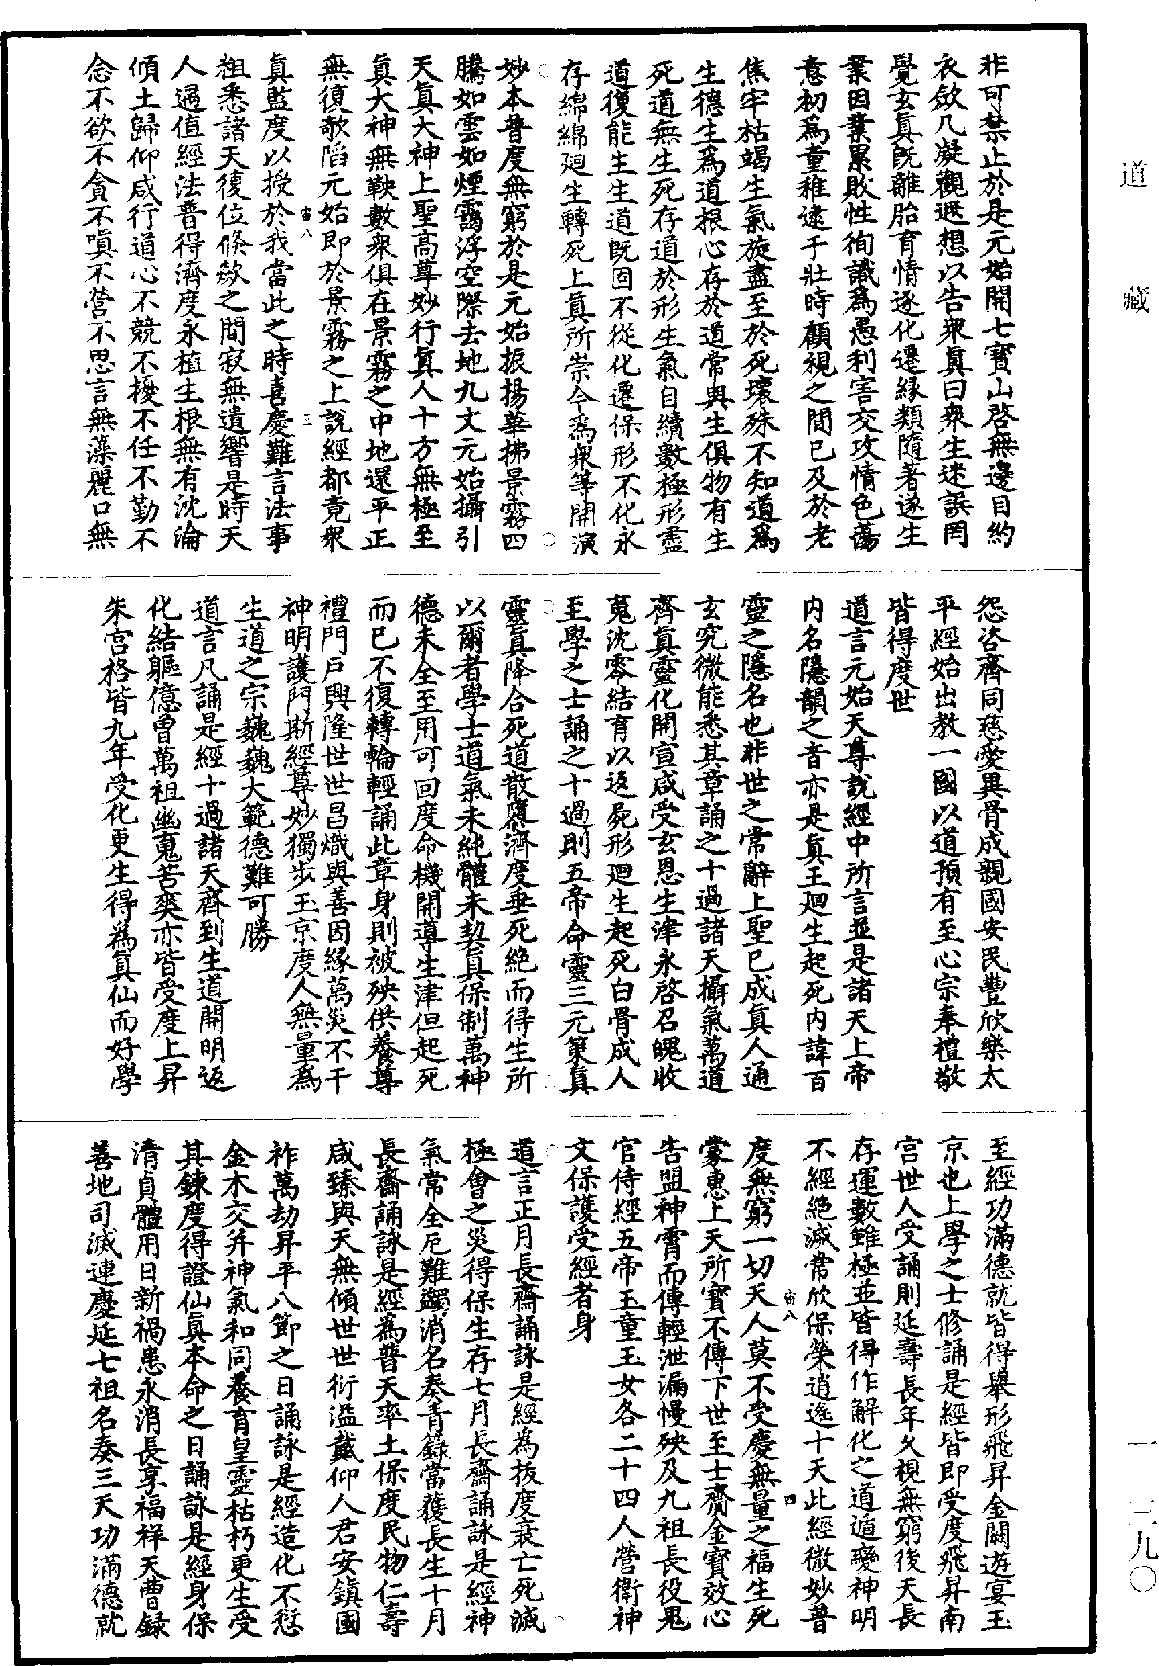 道藏
非可禁止於是元始開七寶山啓無邊目約
衣斂几凝觀遐想以告衆真曰衆生迷誤罔
覺玄真既離胎育情逐化遷緣類隨著遂生
業因業累敗性徇識爲愚利害交攻情色蕩
意初爲童稚逮于壯時顧視之間已及於老
焦牢枯竭生氣旋盡至於死壞殊不知道爲
生德生爲道根心存於道常與生俱物有生
死道無生死存道於形生氣自續數極形盡
道復能生生道既固不從化遷保形不化永
存綿綿廻生轉死上真所崇今爲衆等開演
妙本普度無窮於是元始振揚華拂景霧四
騰如雲如煙靄浮空際去地九丈元始攝引
天真大神上聖高尊妙行真人十方無極至
真大神無鞅數衆俱在景霧之中地還平正
無復欹陷元始即於景霧之上說經都竟衆
宙八 三
真監度以授於我當此之時喜慶難言法事
粗悉諸天復位倏歘之間寂無遺響是時天
人遇值經法普得濟度永植生根無有沈淪
傾土歸仰咸行道心不競不擾不任不勤不
念不欲不貪不嗔不營不思言無藻麗口無
怨咨齊同慈愛異骨成親國安民豐欣樂太
平經始出教一國以道預有至心宗奉禮敬
皆得度世
道言元始天尊說經中所言並是諸天上帝
内名隱韻之音亦是真王廻生起死内諱百
靈之隱名也非世之常辭上聖已成真人通
玄究微能悉其章誦之十過諸天攝氣萬道
齊真靈化開宣咸受玄恩生津永啓召魄收
䰟沈零結育以返屍形廻生起死白骨成人
至學之士誦之十過則五帝命靈三元策真
靈真降合死道散墮濟度垂死絶而得生所
以爾者學士道氣未純體未契真保制萬神
德未全至用可回度命機開導生津但起死
而已不復轉輪輕誦此章身則被殃供養尊
禮門戶興隆世世昌熾與善因緣萬災不干
神明護門斯經尊妙獨步玉京度人無量爲
生道之宗巍巍大範德難可勝
道言凡誦是經十過諸天齊到生道開明返
化結軀億曾萬祖幽䰟苦爽亦皆受度上昇
朱宮格皆九年受化更生得爲真仙而好學
至經功滿德就皆得舉形飛昇金闕遊宴玉
京也上學之士修誦是經皆即受度飛昇南
宮世人受誦則延壽長年久視無窮後天長
存運數雖極並皆得作解化之道遁變神明
不經絶滅常欣保榮逍遙十天此經微妙普
宙八 四
度無窮一切天人莫不受慶無量之福生死
蒙惠上天所寶不傳下世至士齎金寶效心
告盟神霄而傳輕泄漏慢殃及九祖長役䰟
官侍經五帝玉童玉女各二十四人營衛神
文保護受經者身
道言正月長齋誦詠是經爲拔度衰亡死滅
極會之災得保生存七月長齋誦詠是經神
氣常全厄難蠲消名奏青籙當獲長生十月
長齋誦詠是經爲普天率土保度民物仁壽
咸臻與天無傾世世衍溢戴仰人君安鎮國
祚萬劫昇平八節之日誦詠是經造化不愆
金木交并神氣和同養育皇靈枯朽更生受
其鍊度得證仙真本命之日誦詠是經身保
清貞體用日新禍患永消長享福祥天曹録
善地司滅連慶延七祖名奏三天功滿德就
一 三九〇